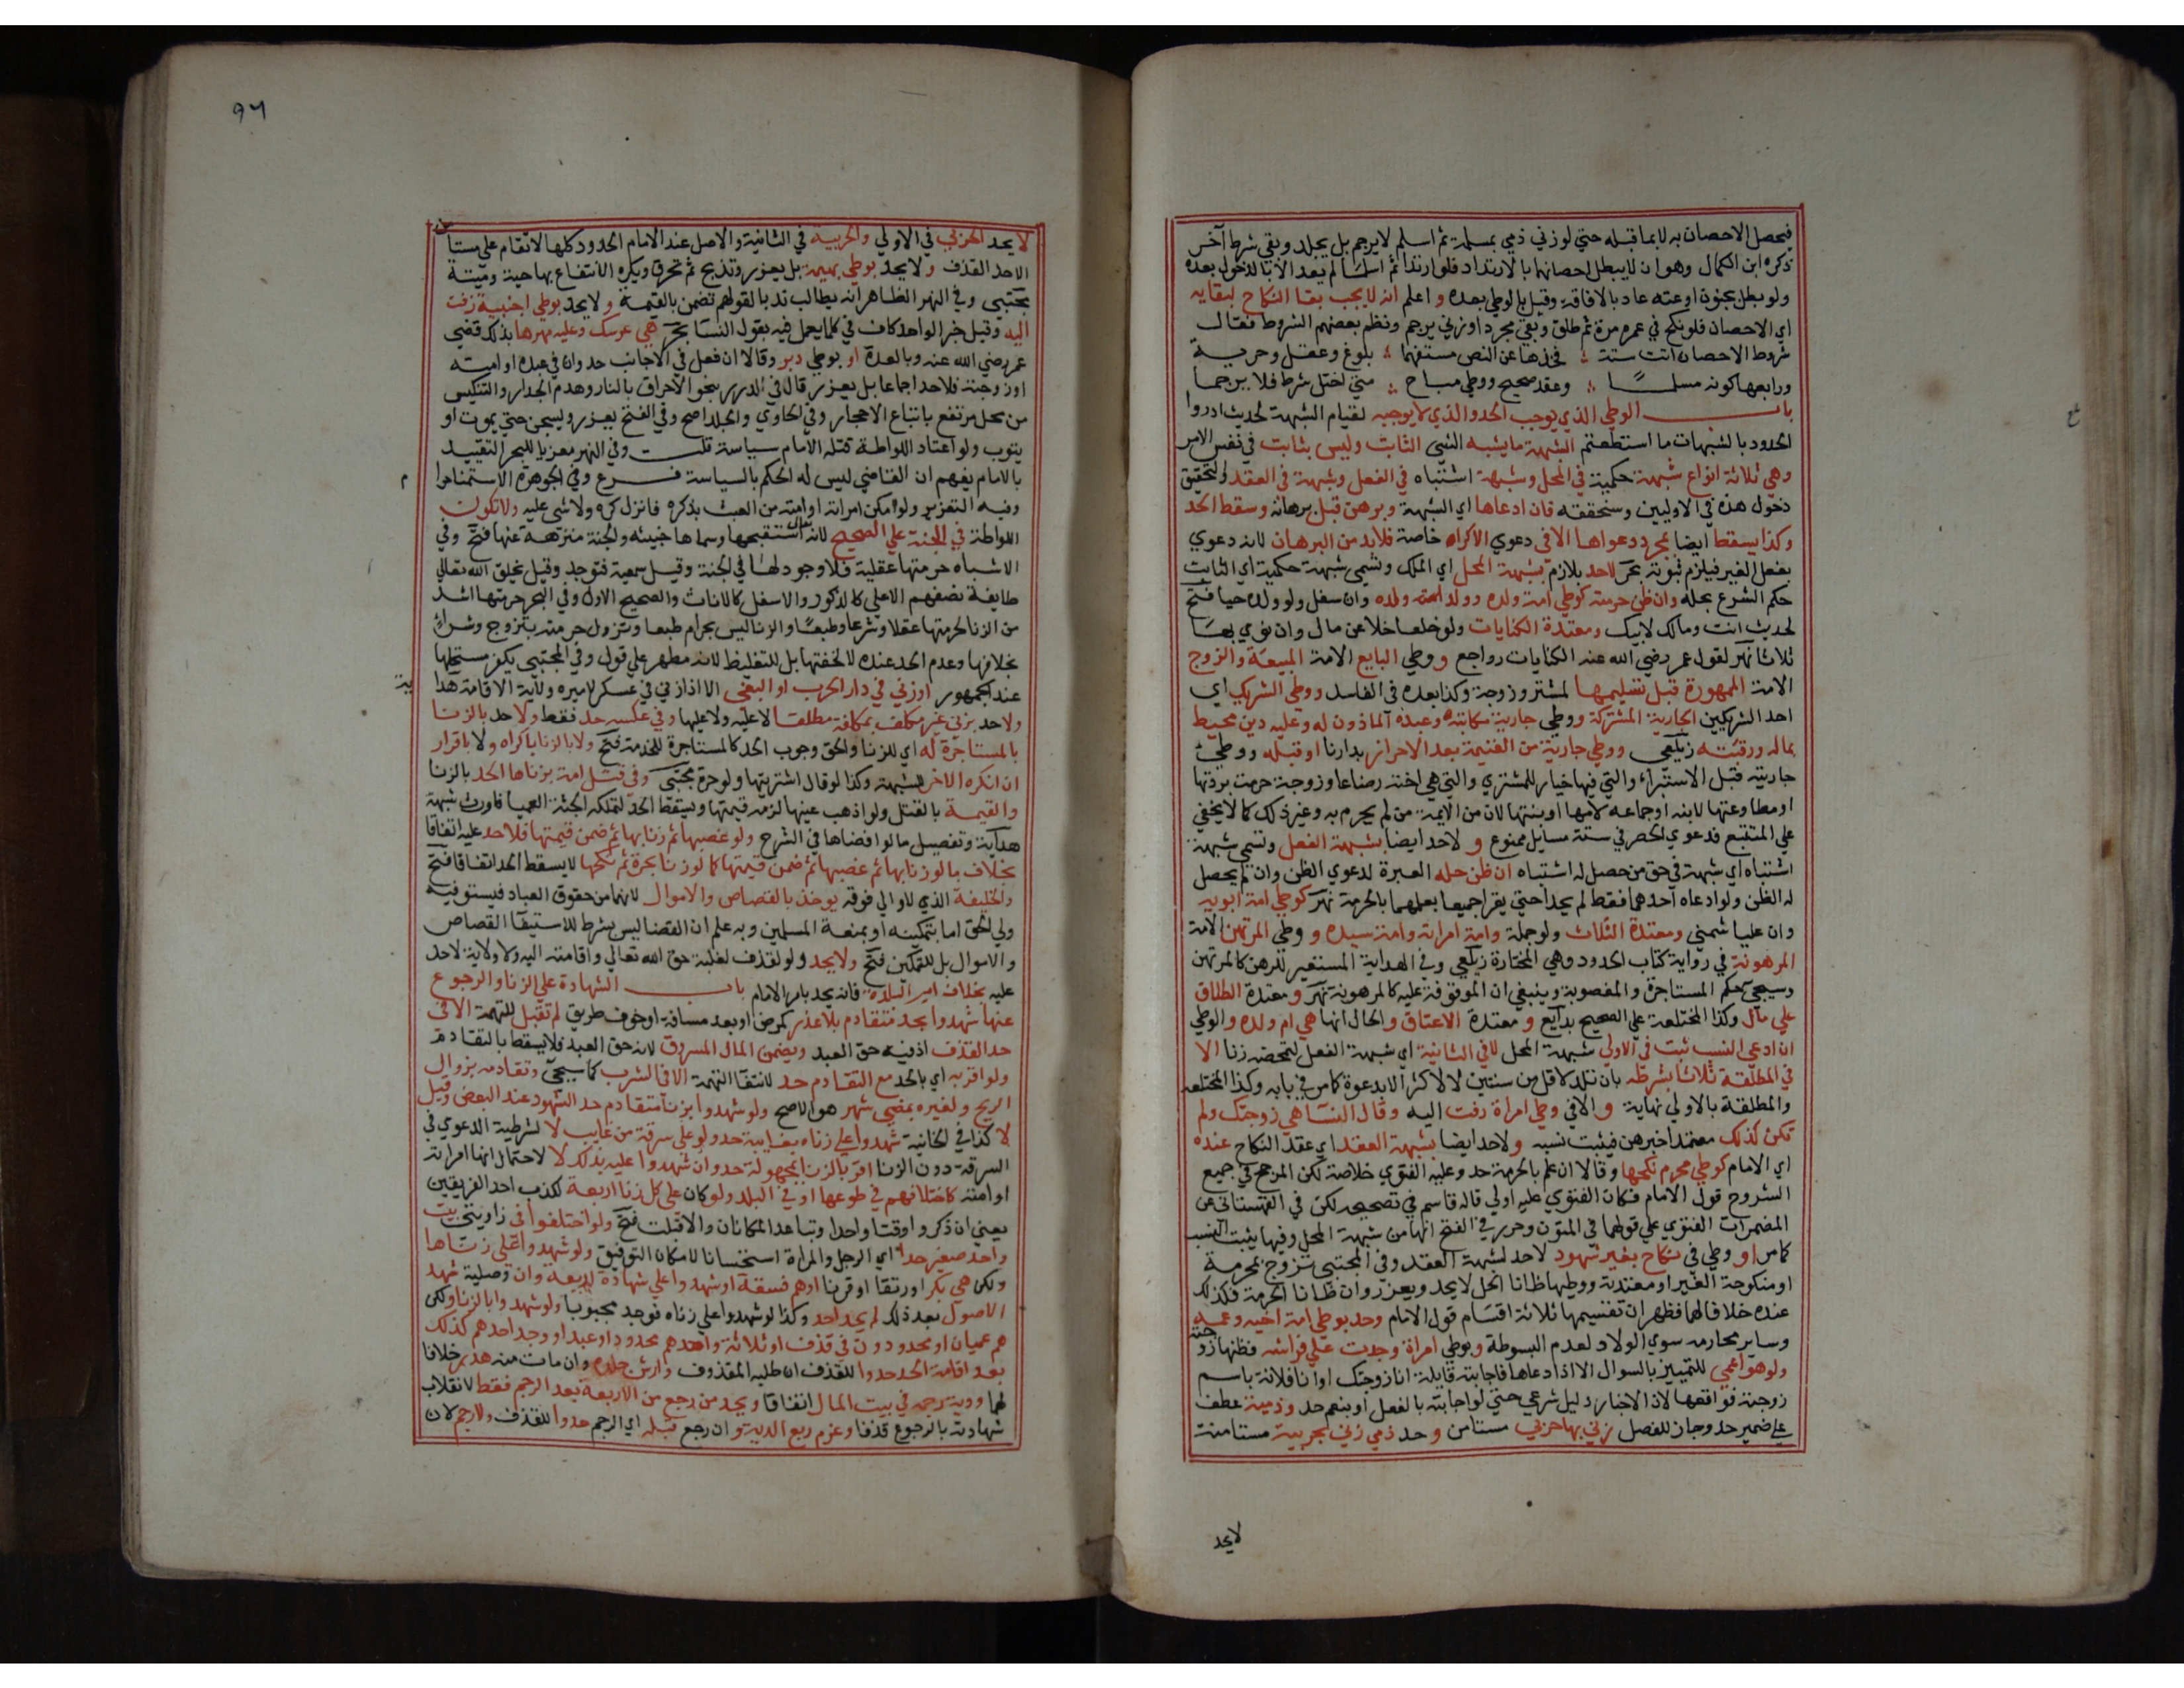 فيحصل الاحصان به لا بما قبله حتي لو زني ذمي بمسلمة ثم اسلم لا يرجم بل يجلد وبقي شرط آخر
ذكره ابن الكمال وهو ان لا يبطل احصانهما بالارتداد فلو ارتدا ثم اسلما لم يعد الا بالدخول بعده
ولو بطل بجنون او عته عاد بالافاقة وقيل بالوطي بعده و اعلم انه لا يجب بقا النكاح لبقايه
اي الاحصان فلو نكح في عمره مرة ثم طلق وبقي مجردا وزني يرجم ونظم بعضهم الشروط فقال
شروط الاحصان اتت ستة فخذها عن النص مستفهما بلوغ وعقل وحرية
ورابعها كونه مسلما وعقد صحيح ووطي مباح متي اختل شرط فلا يرجما
باب الوطي الذي يوجب الحد والذي لا يوجبه لقيام الشبهة لحديث ادروا
الحدود بالشبهات ما استطعتم الشبهة ما يشبه الشي الثابت وليس بثابت في نفس الامر
وهي ثلاثة انواع شبهة حكمية في المحل وشبهة اشتباه في الفعل وشبهة في العقد والتحقيق
دخول هذه في الاوليين وسنحققه فان ادعاها اي الشبهة وبرهن قبل برهانه وسقط الحد
وكذا يسقط ايضا بمجرد دعواها الا في دعوي الاكراه خاصة فلا بد من البرهان لانه دعوي
بفعل الغير فيلزم ثبوته بحر لا حد بلازم بشبهة المحل اي الملك وتسمي شبهة حكمية اي الثابت
حكم الشرع بحله وان ظن حرمته كوطي امة ولده وولد ولده وان سفل ولو ولده حيا فتح
لحديث انت ومالك لابيك ومعتدة الكنايات ولو خلعا خلا عن مال وان نوي بها
ثلاثا نهر لقول عمر رضي الله عنه الكنايات رواجع ووطي البايع الامة المبيعة والزوج
الامة الممهورة قبل تسليمها لمشتر وزوجة وكذا بعده في الفاسد ووطي الشريك اي
احد الشريكين الجارية المشتركة ووطي جارية مكاتبه وعبده الماذون له وعليه دين محيط
بماله ورقبته زيلعي ووطي جارية من الغنيمة بعد الاحراز بدارنا او قبله ووطي
جاريته قبل الاستبراء والتي فيها خيار للمشتري والتي هي اخته رضاعا وزوجة حرمت بردتها
او مطاوعتها لابنه او جماعه لامها او بنتها لان من الايمة من لم يحرم به وغير ذلك كما لا يخفي
علي المتتبع فدعوي الحصر في ستة مسايل ممنوع و لا حد ايضا بشبهة الفعل وتسمي شبهة
اشتباه اي شبهة في حق من حصل له اشتباه ان ظن حله العبرة لدعوي الظن وان لم يحصل
له الظن ولو ادعاه احدهما فقط لم يحدا حتي يقرا جميعا بعلمهما بالحرمة نهر كوطي امة ابويه
وان عليا شمني ومعتدة الثلاث ولو جملة وامة امراته وامة سيده و وطي المرتهن الامة
المرهونة في رواية كتاب الحدود وهي المختارة زيلعي وفي الهداية المستعير للرهن كالمرتهن
وسيجي حكم المستاجرة والمغصوبة وينبغي ان الموقوفة عليه كالمرهونة نهر و معتدة الطلاق
علي مال وكذا المختلعة علي الصحيح بدايع و معتدة الاعتاق والحال انها هي ام ولده والوطي
ان ادعي النسب ثبت في الاولي شبهة المحل لا في الثانية اي شبهة الفعل لتمحضه زنا الا
في المطلقة ثلاثا بشرطه بان تلد لاقل من سنتين لا لاكثر الا بدعوة كما مر في بابه وكذا المختلعة
والمطلقة بالاولي نهاية و الا في وطي امراة زفت اليه وقال النسا هي زوجتك ولم
تكن كذلك معتمدا خبرهن فيثبت نسبه و لا حد ايضا بشبهة العقد اي عقد النكاح عنده
اي الامام كوطي محرم نكحها وقالا ان علم بالحرمة حد وعليه الفتوي خلاصة لكن المرجح في جميع
الشروح قول الامام فكان الفتوي عليه اولي قاله قاسم في تصحيحه لكن في القهستاني عن
المضمرات الفتوي علي قولهما في المتون وحرر في الفتح انها من شبهة المحل وفيها يثبت النسب
كما مر او وطي في نكاح بغير شهود لا حد لشبهة العقد وفي المجتبي تزوج بمحرمة
او منكوحة الغير او معتدته ووطيها ظانا الحل لا يحد ويعزر وان ظانا الحرمة فكذلك
عنده خلافا لهما فظهر ان تقسيمها ثلاثة اقسام قول الامام وحد بوطي امة اخيه وعمه
وساير محارمه سوي الولاد لعدم البسوطة وبوطي امراة وجدت علي فراشه فظنها زوجته
ولو هو اعمي للتمييز بالسوال الا اذا دعاها فاجابته قايلة انا زوجتك او انا فلانة باسم
زوجته فواقعها لان الاخبار دليل شرعي حتي لو اجابته بالفعل او بنعم حد وذمية عطف
علي ضمير حد وجاز للفصل زني بها حربي مستامن و حد ذمي زني بحربية مستامنة
لا يحد
٩٦
لا يحد الحربي في الاولي والحربية في الثانية والاصل عند الامام الحدود كلها لا تقام علي مستا
الا حد القذف و لا يحد بوطي بهيمة بل يعزر وتذبح ثم تحرق ويكره الانتفاع بها حية وميتة
مجتبي وفي النهر الظاهر انه يطالب ندبا لقولهم تضمن بالقيمة و لا يحد بوطي اجنبية زفت
اليه وقيل خبر الواحد كاف في كل ما يعمل فيه بقول النسا بحر هي عرسك وعليه مهرها بذلك قضي
عمر رضي الله عنه وبالعدة او بوطي دبر وقالا ان فعل في الاجانب حد وان في عبده او امته
او زوجته فلا حد اجماعا بل يعزر قال في الدرر بنحو الاحراق بالنار وهدم الجدار والتنكيس
من محل مرتفع باتباع الاحجار وفي الحاوي والجلد اصح وفي الفتح يعزر ويسجن حتي يموت او
يتوب ولو اعتاد اللواطة قتله الامام سياسة قلت وفي النهر معزيا للبحر التقييد
بالامام يفهم ان القاضي ليس له الحكم بالسياسة فرع وفي الجوهرة الاستمنا حرام
وفيه التعزير ولو امكن امراته او امته من العبث بذكره فانزل كره ولا شي عليه ولا تكون
اللواطة في الجنة علي الصحيح لانه تعالي استقبحها وسماها خبيثة والجنة منزهة عنها فتح وفي
الاشباه حرمتها عقلية فلا وجود لها في الجنة وقيل سمعية فتوجد وقيل يخلق الله تعالي
طايفة نصفهم الاعلي كالذكور والاسفل كالاناث والصحيح الاول وفي البحر حرمتها اشد
من الزنا لحرمتها عقلا وشرعا وطبعا والزنا ليس بحرام طبعا وتزول حرمته بتزوج وشراء
بخلافها وعدم الحد عنده لا لخفتها بل للتغليظ لانه مطهر علي قول وفي المجتبي يكفر مستحلها
عند الجمهور او زني في دار الحرب او البغي الا اذا زني في عسكر لاميره ولاية الاقامة هداية
ولا حد بزني غير مكلف بمكلفة مطلقا لا عليه ولا عليها وفي عكسه حد فقط ولا حد بالزنا
بالمستاجرة له اي للزنا والحق وجوب الحد كالمستاجرة للخدمة فتح ولا بالزنا باكراه ولا باقرار
ان انكره الاخر للشبهة وكذا لو قال اشتريتها ولو حرة مجتبي وفي قتل امة بزناها الحد بالزنا
والقيمة بالقتل ولو اذهب عينها لزمه قيمتها ويسقط الحد لتملكه الجثة العميا فاورث شبهة
هداية وتفصيل ما لو افضاها في الشرح ولو غصبها ثم زنا بها ثم ضمن قيمتها فلا حد عليه اتفاقا
بخلاف ما لو زنا بها ثم غصبها ثم ضمن قيمتها كما لو زنا بحرة ثم نكحها لا يسقط الحد اتفاقا فتح
والخليفة الذي لا والي فوقه يوخذ بالقصاص والاموال لانهما من حقوق العباد فيستوفيه
ولي الحق اما بتمكينه او بمنعة المسلمين وبه علم ان القضا ليس بشرط لاستيفا القصاص
والاموال بل للتمكين فتح ولا يحد ولو لقذف لغلبة حق الله تعالي واقامته اليه ولا ولاية لاحد
عليه بخلاف امير البلدة فانه يحد بامر الامام باب الشهادة علي الزنا والرجوع
عنها شهدوا بحد متقادم بلا عذر كمرض او بعد مسافة او خوف طريق لم تقبل للتهمة الا في
حد القذف اذ فيه حق العبد ويضمن المال المسروق لانه حق العبد فلا يسقط بالتقادم
ولو اقر به اي بالحد مع التقادم حد لانتفا التهمة الا في الشرب كما سيجي وتقادمه بزوال
الريح ولغيره بمضي شهر هو الاصح ولو شهدوا بزنا متقادم حد الشهود عند البعض وقيل
لا كذا في الخانية شهدوا علي زناه بغايبة حد ولو علي سرقة من غايب لا لشرطية الدعوي في
السرقة دون الزنا اقر بالزنا بمجهولة حد وان شهدوا عليه بذلك لا لاحتمال انها امراته
او امته كاختلافهم في طوعها او في البلد ولو كان علي كل زنا اربعة لكذب احد الفريقين
يعني ان ذكروا وقتا واحدا وتباعد المكانان والا قبلت فتح ولو اختلفوا في زاويتي بيت
واحد صغير حدا اي الرجل والمراة استحسانا لامكان التوفيق ولو شهدوا علي زناها
ولكن هي بكر او رتقا او قرنا او هم فسقة او شهدوا علي شهادة اربعة وان وصلية شهد
الاصول بعد ذلك لم يحد احد وكذا لو شهدوا علي زناه فوجد مجبوبا ولو شهدوا بالزنا ولكن
هم عميان او محدودون في قذف او ثلاثة واحدهم محدود او عبد او وجد احدهم كذلك
بعد اقامة الحد حدوا للقذف ان طلبه المقذوف وارش جلده وان مات منه هدر خلافا
لهما ودية رجمه في بيت المال اتفاقا ويحد من رجع من الاربعة بعد الرجم فقط لانقلاب
شهادته بالرجوع قذفا وغرم ربع الدية وان رجع قبله اي الرجم حدوا للقذف ولا رجم لان